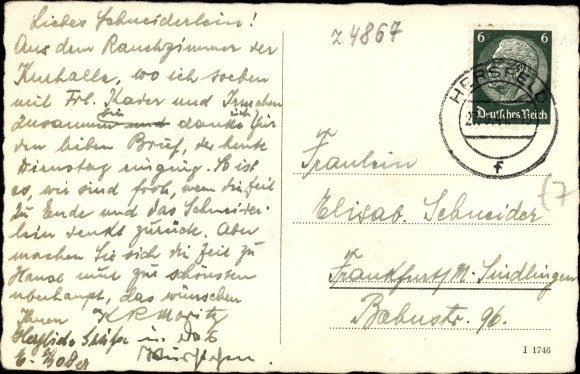 Liebes Schneiderlein!
Aus dem Rauchzimmer der
Kurhalle, wo ich soeben
mit Frl. Kader und
zusammen bin danke ich für
den lieben Brief, der heute
Dienstag einging. So ist
es, wir sind froh, wenn die Zeit
zu Ende und das Schneider-
lein denkt zurück. Aber
machen Sie sich die Zeit zu
Hause nur zur schönsten
überhaupt, das wünschen
Ihnen K. R. Moritz
Herzliche Grüße
z 4867
6 6
Deutsches Reich
HERSFELD
f
(7
Fräulein
Elisab. Schneider
Frankfurt/M. Sindlingen
Bahnstr. 96.
I 1746